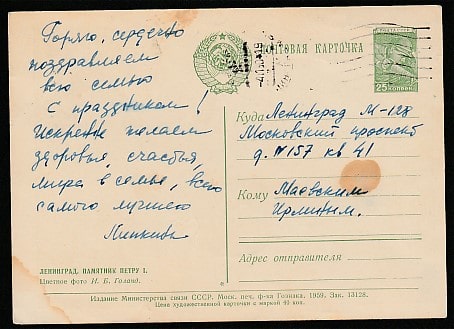 Горячо, сердечно
поздравляем
всю семью
с праздником!
Искренне желаем
здоровья, счастья,
мира в семье, всего
самого лучшего
ПОЧТОВАЯ КАРТОЧКА
25 КОПЕЕК
Куда Ленинград М-128
Московский проспект
д. №157 кв 41
Кому Маевским
Адрес отправителя
ЛЕНИНГРАД. ПАМЯТНИК ПЕТРУ I.
Цветное фото И. Б. Голанд.
Издание Министерства связи СССР. Моск. печ. ф-ка Гознака. 1959. Зак. 13128.
Цена художественной карточки с маркой 40 коп.